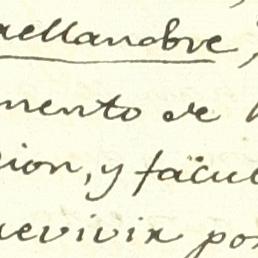 aellanobre,
mento de
cion, y facul
revivir por